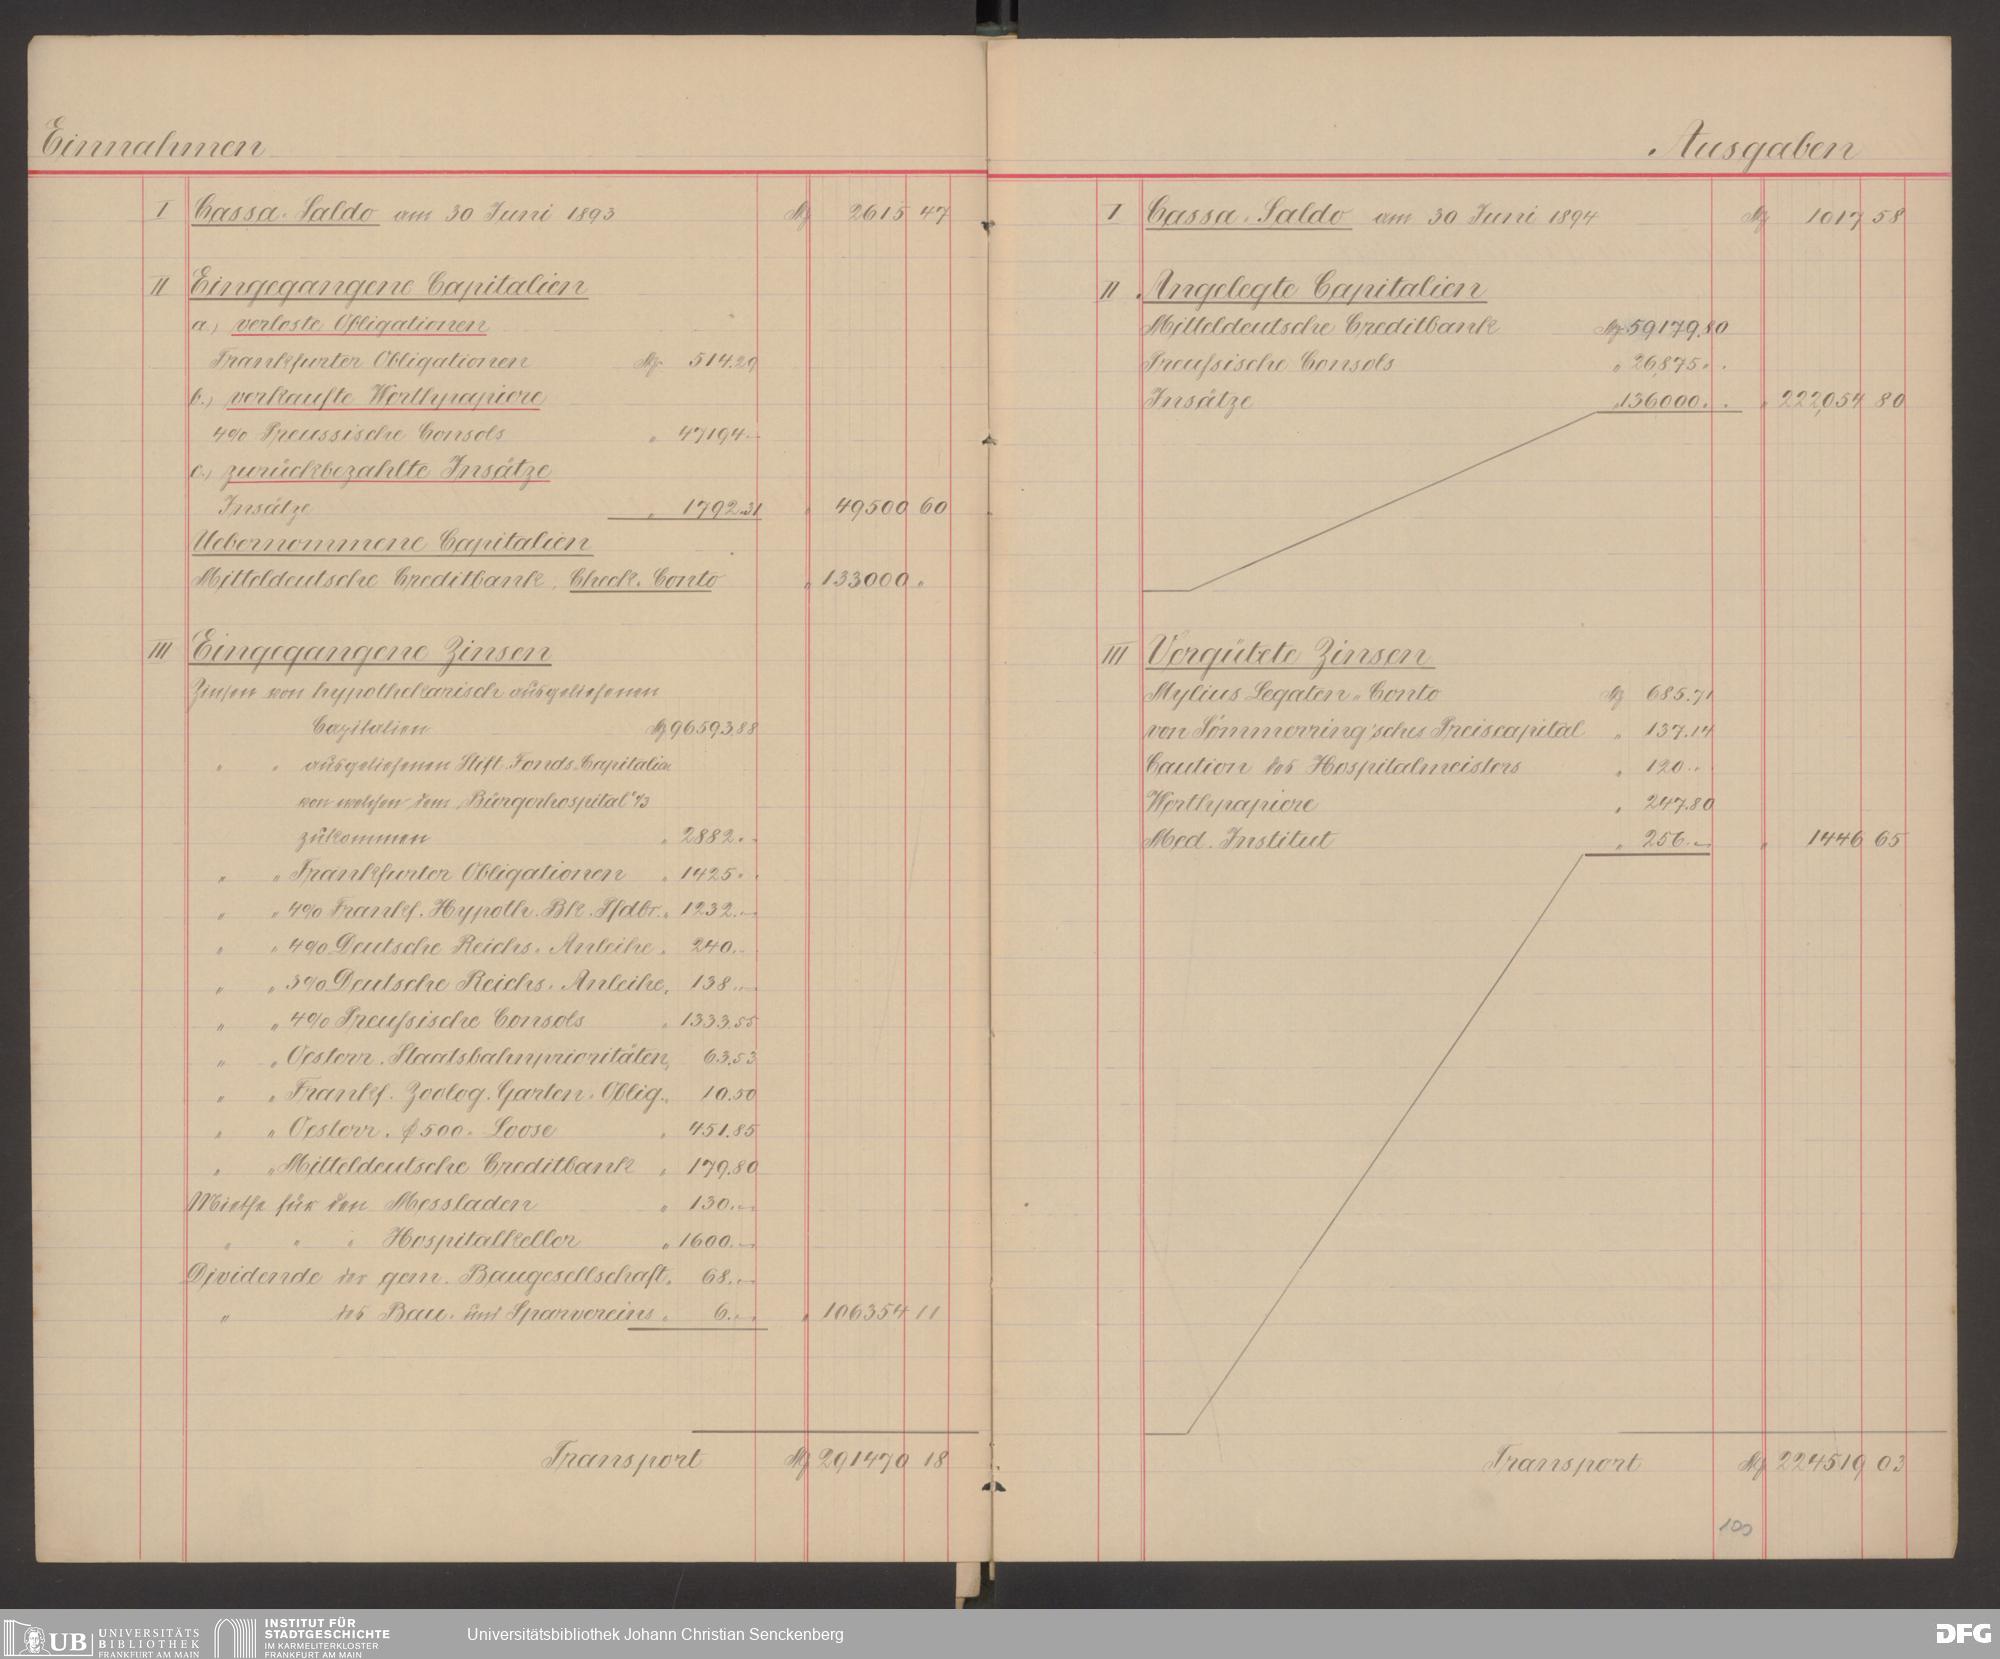 Einnahmen
I Cassa-Saldo am 30 Juni 1893 M 2615 47
II Eingegangene Capitalien
a.) verloste Obligationen
Frankfurter Obligationen M 514.29
b.) verkaufte Werthpapiere
4% Preussische Consols " 47194.-
c.) zurückbezahlte Insätze
Insätze " 1792.31 " 49500 60
Uebernommene Capitalien
Mitteldeutsche Creditbank, Check-Conto " 133000 "
III Eingegangene Zinsen
Zinsen von hypothekarisch ausgeliehenen
Capitalien M 96593.88
" " ausgeliehenen Stift.Fonds-Capitalien
von welchen dem Bürgerhospital 2/3
zukommen " 2882.-
" " Frankfurter Obligationen " 1425.-
" " 4% Frankf. Hypoth. Bk. Pfdbr. " 1232.-
" " 4% Deutsche Reichs-Anleihe " 240.-
" " 3% Deutsche Reichs-Anleihe " 138.-
" " 4% Preußische Consols " 1333.55
" " Oesterr. Staatsbahnprioritäten " 63.53
" " Frankf. Zoolog. Garten-Oblig. " 10.50
" " Oesterr. f 500.- Loose " 451.85
" " Mitteldeutsche Creditbank " 179.80
Miethe für den Messladen " 130.-
" " " Hospitalkeller " 1600.-
Dividende der gem. Baugesellschaft " 68.-
" des Bau- und Sparvereins " 6.- " 106354 11
Transport M 291470 18
Ausgaben
I Cassa-Saldo am 30 Juni 1894 M 1017 58
II Angelegte Capitalien
Mitteldeutsche Creditbank M 59179.80
Preußische Consols " 26875.-
Insätze " 136000.- " 222,054 80
III Vergütete Zinsen
Mylius Legaten-Conto M 685.71
von Sömmerring'sches Preiscapital " 137.14
Caution des Hospitalmeisters " 120.-
Werthpapiere " 247.80
Med. Institut " 256.- " 1446 65
Transport M 224519 03
100
UB UNIVERSITÄTS
BIBLIOTHEK
FRANKFURT AM MAIN
INSTITUT FÜR
STADTGESCHICHTE
IM KARMELITERKLOSTER
FRANKFURT AM MAIN
Universitätsbibliothek Johann Christian Senckenberg
DFG